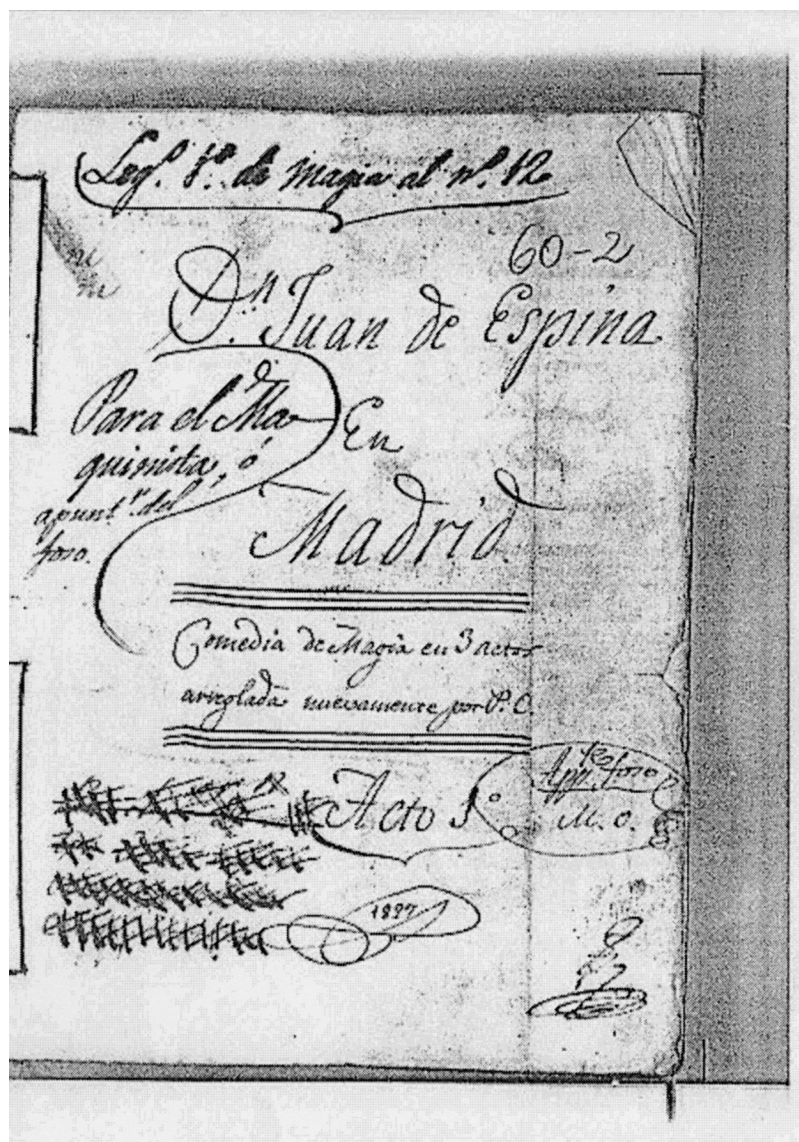 Leg.º 1.º de magia al n.º 12
60-2
D.n Juan de Espina
Para el Ma
quinista, ó
apunt.r del
foso.
En
Madrid
Comedia de Magia en 3 actos
arreglada nuevamente por P. C.
Acto 1º
foso
M. O.